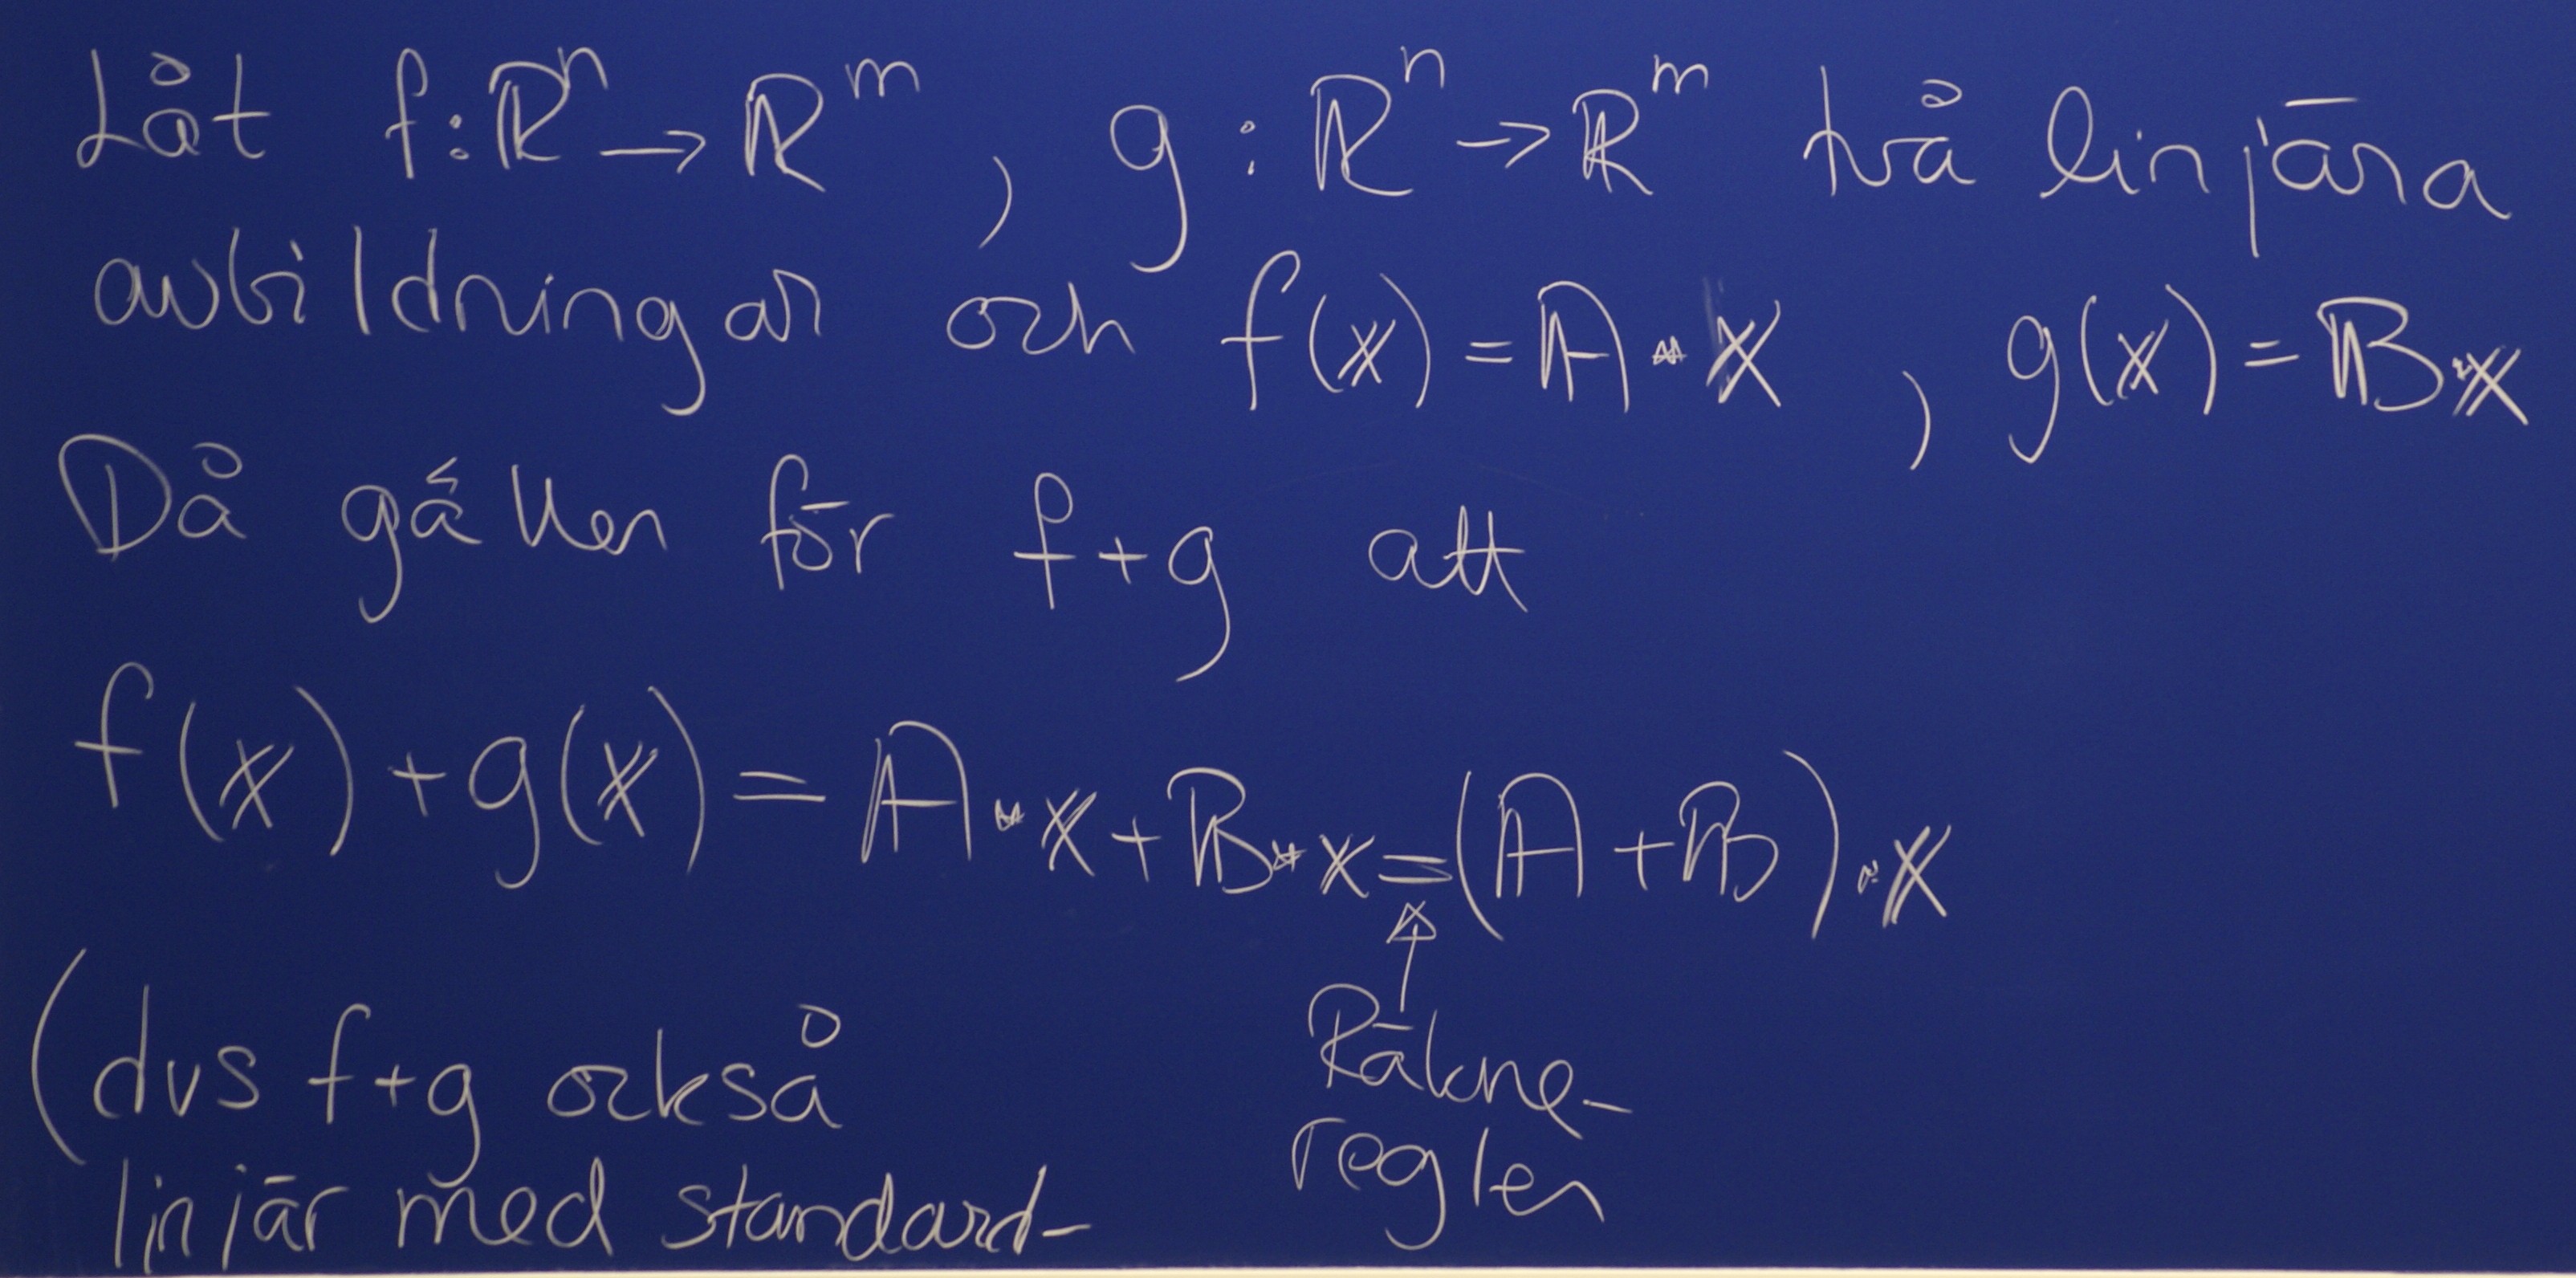 Låt f: ℝⁿ → ℝᵐ, g: ℝⁿ → ℝᵐ två linjära
avbildningar och f(x) = A·x, g(x) = B·x
Då gäller för f+g att
f(x)+g(x) = A·x+B·x=(A+B)·x
(dvs f+g också
linjär med standard-
↑
Räkne-
regler